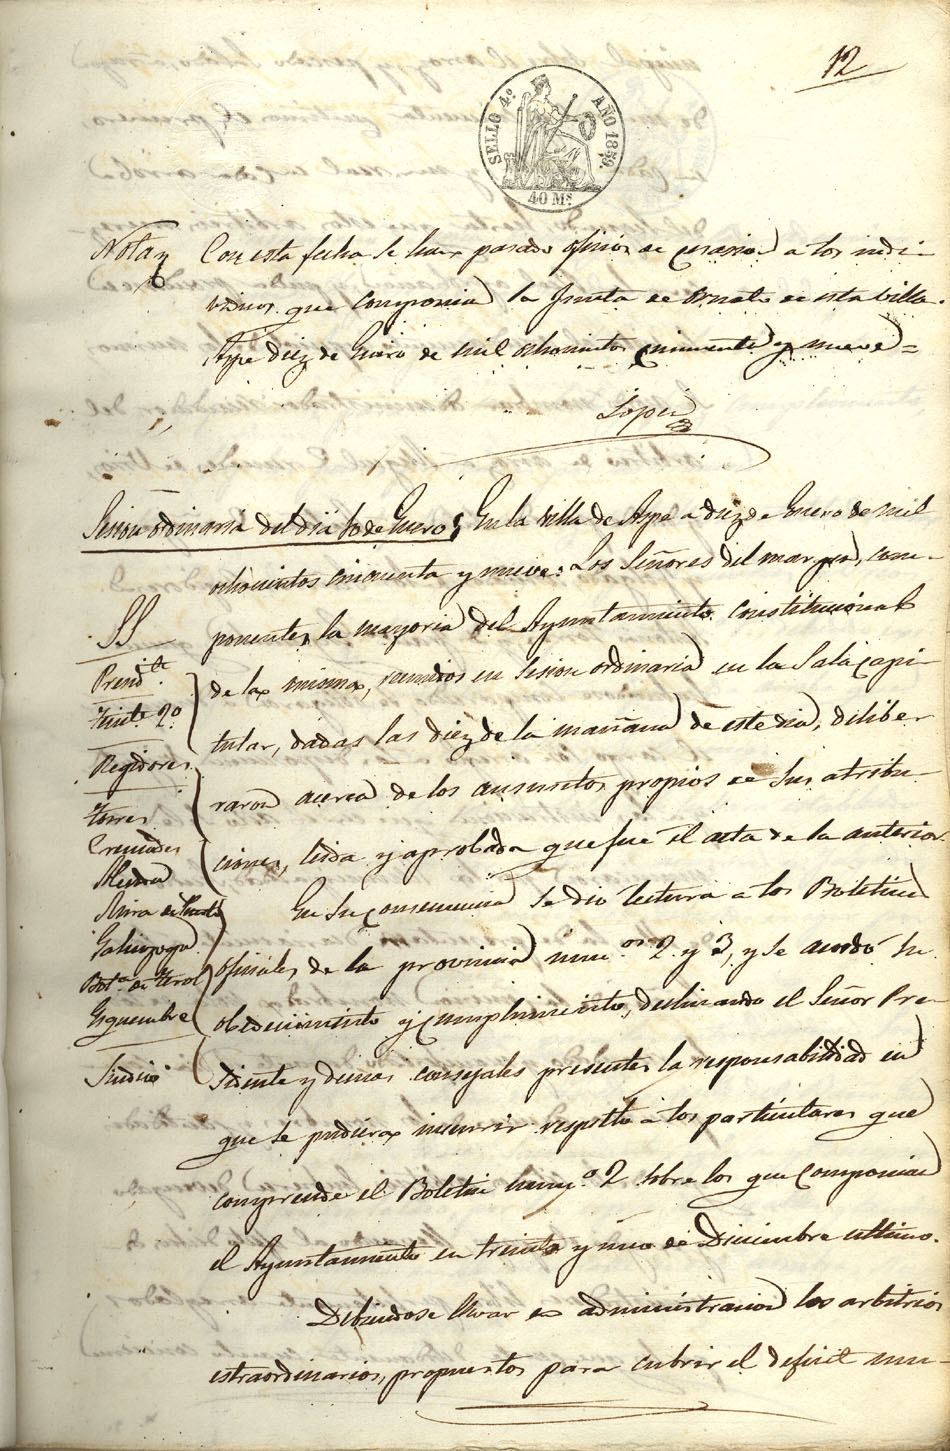 12
SELLO 4.º AÑO 1859.
40 M.s
Nota Con esta fecha se han pasado oficios de cesacion a los indi-
viduos que componian la Junta de Ornato de esta villa.
Aspe diez de Enero de mil ochocientos cincuenta y nueve=
Lopez
Sesion ordinaria del dia 10 de Enero En la Villa de Aspe a diez de Enero de mil
ochocientos cincuenta y nueve: Los Señores del margen, com-
ponentes la mayoria del Ayuntamiento constitucional
de la misma, reunidos en sesion ordinaria en la Sala Capi-
tular, dadas las diez de la mañana de este dia, delibe-
raron acerca de los asuntos propios de sus atribu-
ciones, leida y aprobada que fue el acta de la anterior.
SS
Presid.te
Tente. 2.º
Regidores
Torres
Cremades
Almodo
Mira
Galinzoga
Bot.a de Terol
Esquembre
Sindico
En su consecuencia se dio lectura a los Boletines
oficiales de la provincia num.os 2 y 3, y se acordó su
obedecimiento y cumplimiento, declinando el Señor Pre-
sidente y demas consejales presentes la responsabilidad en
que se pudiera incurrir respetto a los particulares que
comprende el Boletin num.º 2 sobre los que componian
el Ayuntamiento en treinta y uno de Diciembre ultimo.
Debiendose llevar en administracion los arbitrios
estraordinarios, propuestos para cubrir el deficit mu-